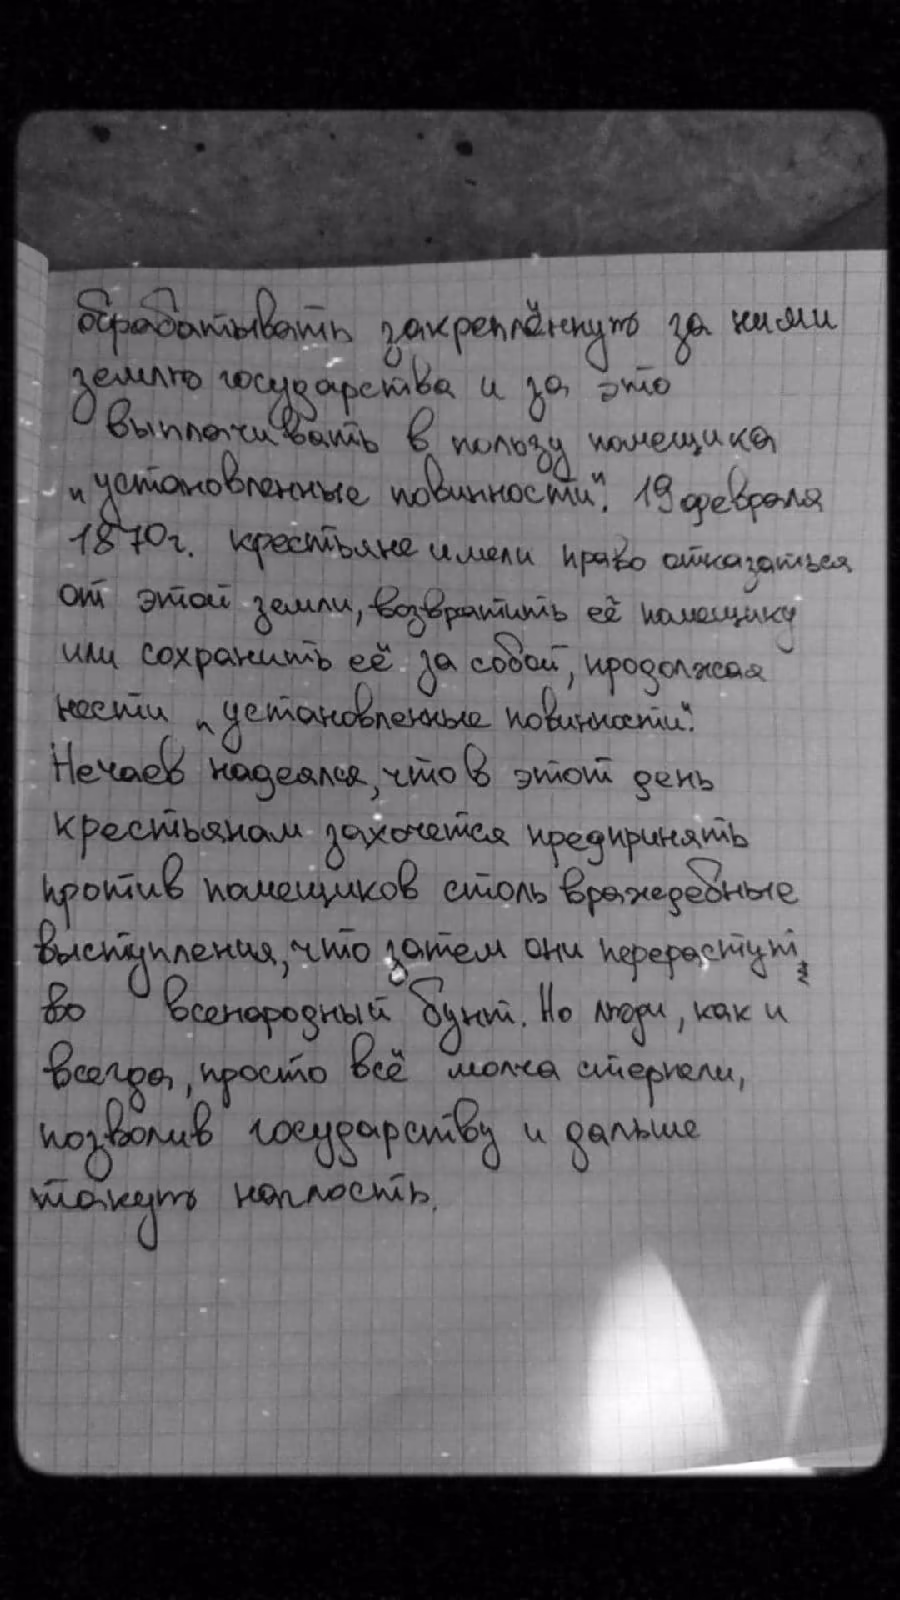 обрабатывать закреплённую за ними
землю государства и за это
выплачивать в пользу помещика
„установленные повинности". 19 февраля
1870г. крестьяне имели право отказаться
от этой земли, возвратить её помещику
или сохранить её за собой, продолжая
нести „установленные повинности".
Нечаев надеялся, что в этот день
крестьянам захочется предпринять
против помещиков столь враждебные
выступления, что затем они перерастут
во всенародный бунт. Но люди, как и
всегда, просто всё молча стерпели,
позволив государству и дальше
такую наглость.